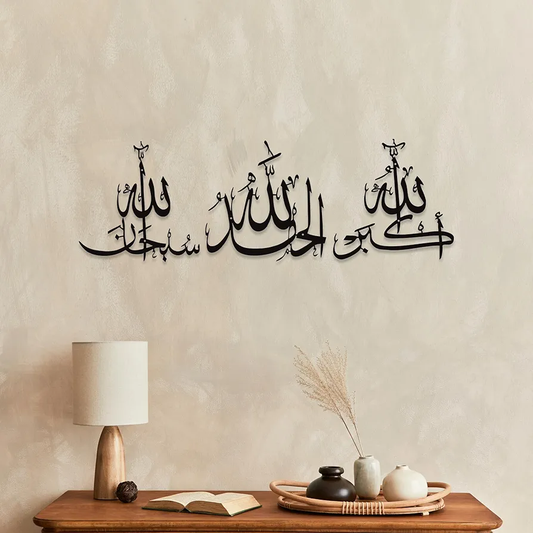 الله أكبر الحمد لله سبحان الله